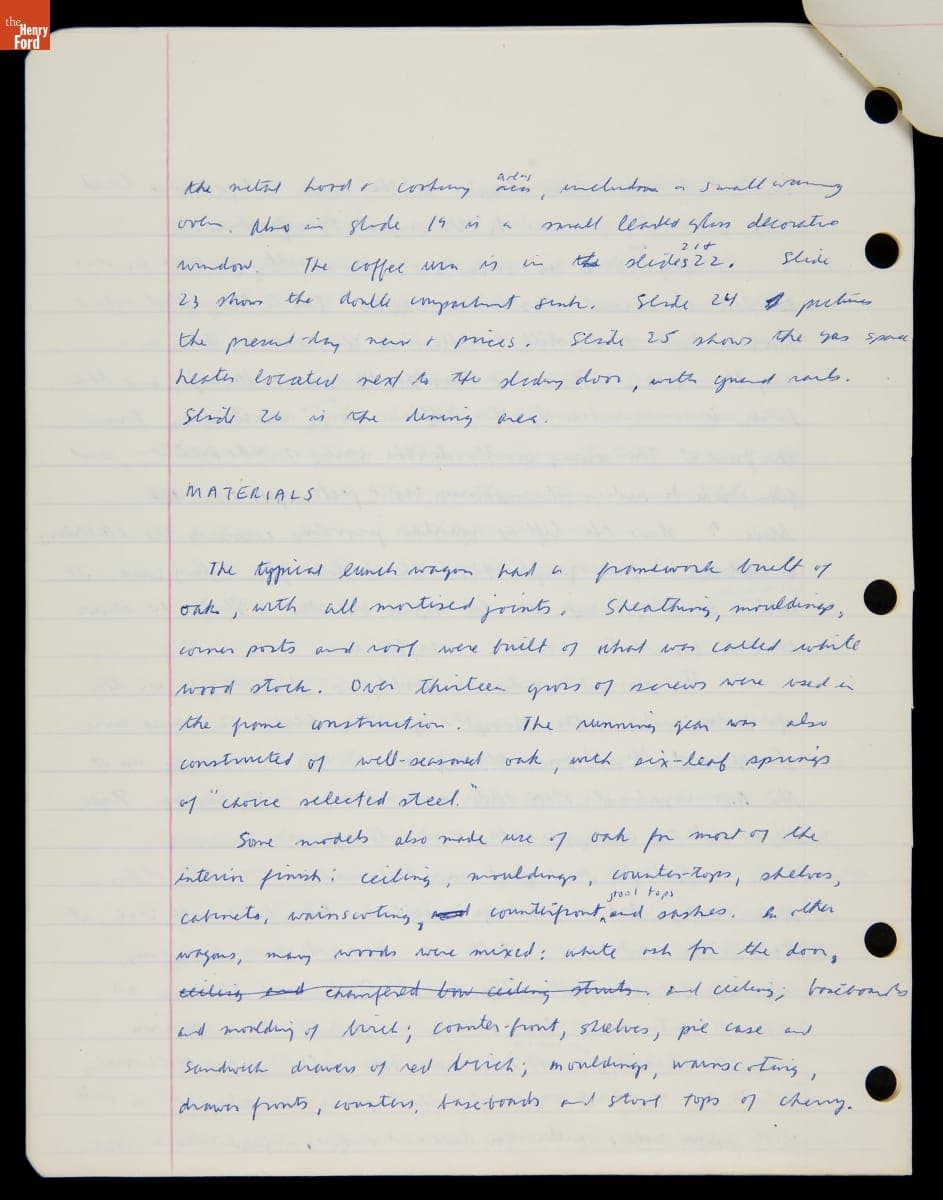 the Henry Ford
the metal hood & cooking areas, including a small warming
oven. Also in slide 19 is a small leaded glass decorative
window. The coffee urn is in the slides 21 & 22. Slide
23 shows the double compartment sink. Slide 24 pictures
the present-day menu & prices. Slide 25 shows the gas space
heater located next to the sliding door, with guard rails.
Slide 26 is the dining area.
MATERIALS
The typical lunch wagon had a framework built of
oak, with all mortised joints. Sheathing, mouldings,
corner posts and roof were built of what was called white
wood stock. Over thirteen gross of screws were used in
the frame construction. The running gear was also
constructed of well-seasoned oak, with six-leaf springs
of "choice selected steel."
Some models also made use of oak for most of the
interior finish: ceiling, mouldings, counter-tops, shelves,
cabinets, wainscoting, and counterfront, stool tops and sashes. In other
wagons, many woods were mixed: white ash for the door,
ceiling and chamfered bow ceiling struts and ceiling; baseboards
and moulding of birch; counter-front, shelves, pie case and
sandwich drawers of red birch; mouldings, wainscoting,
drawer fronts, counters, baseboards and stool tops of cherry.